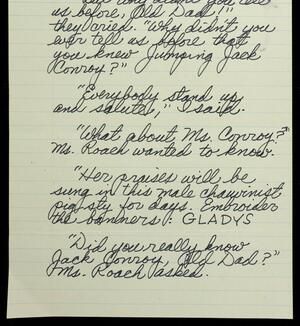 But why didn't you tell
us before, Old Dad,"
they cried. "Why didn't you
ever tell us before that
you knew Jumping Jack
Conroy?"
"Everybody stand up
and salute," I said.
"What about Ms. Conroy?"
Ms. Roach wanted to know.
"Her praises will be
sung in this male chauvinist
pig sty for days. Embroider
the banners: GLADYS
"Did you really know
Jack Conroy, Old Dad?"
Ms. Roach asked.